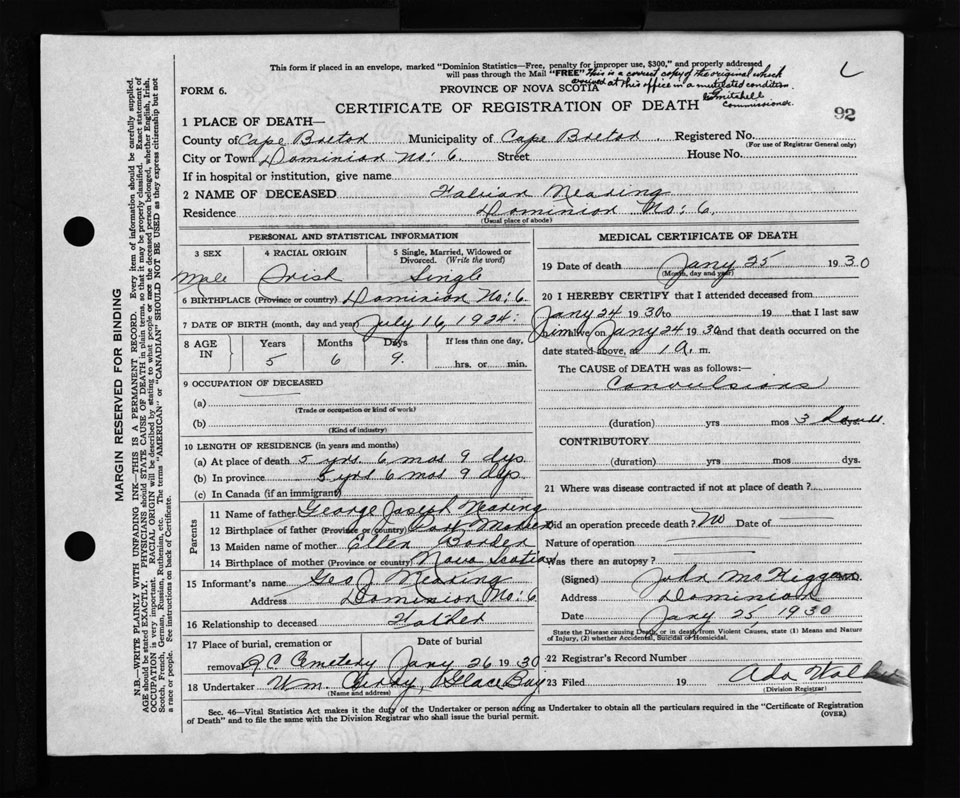 This form if placed in an envelope, marked "Dominion Statistics—Free, penalty for improper use, $300," and properly addressed
will pass through the Mail "FREE" This is a correct copy of the original which
arrived at this office in a mutilated condition.
FORM 6.
PROVINCE OF NOVA SCOTIA
Mitchell
Commissioner.
CERTIFICATE OF REGISTRATION OF DEATH
92
1 PLACE OF DEATH—
County of Cape Breton Municipality of Cape Breton Registered No.
(For use of Registrar General only)
City or Town Dominion No: 6 Street House No.
If in hospital or institution, give name
2 NAME OF DECEASED Fabian Neading
Residence Dominion No: 6.
(Usual place of abode)
PERSONAL AND STATISTICAL INFORMATION
3 SEX 4 RACIAL ORIGIN 5 Single, Married, Widowed or
Divorced. (Write the word)
Male Irish Single
6 BIRTHPLACE (Province or country) Dominion No: 6.
7 DATE OF BIRTH (month, day and year) July 16, 1924.
8 AGE IN Years Months Days If less than one day,
5 6 9. hrs. or min.
9 OCCUPATION OF DECEASED
(a)
(Trade or occupation or kind of work)
(b)
(Kind of industry)
10 LENGTH OF RESIDENCE (in years and months)
(a) At place of death 5 yrs. 6 mos 9 dys.
(b) In province 5 yrs 6 mos 9 dys.
(c) In Canada (if an immigrant)
Parents
11 Name of father George Joseph Neading
12 Birthplace of father (Province or country) Port Morien
13 Maiden name of mother Ellen Borden
14 Birthplace of mother (Province or country) Nova Scotia
15 Informant's name Geo J. Neading
Address Dominion No: 6
16 Relationship to deceased Father
17 Place of burial, cremation or Date of burial
removal R C Cemetery Jany 26 1930
18 Undertaker Wm. Curry, Glace Bay
(Name and address)
MEDICAL CERTIFICATE OF DEATH
19 Date of death Jany 25 1930
(Month, day and year)
20 I HEREBY CERTIFY that I attended deceased from
Jany 24 1930 to 19 that I last saw
him alive on Jany 24 1930 and that death occurred on
the date stated above, at 1 A. m.
The CAUSE of DEATH was as follows:—
Convulsions
(duration) yrs mos 3 dys.
CONTRIBUTORY
(duration) yrs mos dys.
21 Where was disease contracted if not at place of death?
Did an operation precede death? No Date of
Nature of operation
Was there an autopsy?
(Signed) John McKiggan.
Address Dominion
Date Jany 25, 1930
State the Disease causing Death, or in death from Violent Causes, state (1) Means and Nature
of Injury, (2) whether Accidental, Suicidal or Homicidal.
22 Registrar's Record Number
23 Filed 19 Ada
(Division Registrar)
Sec. 46—Vital Statistics Act makes it the duty of the Undertaker or person acting as Undertaker to obtain all the particulars required in the "Certificate of Registration
of Death" and to file the same with the Division Registrar who shall issue the burial permit.
(OVER)
MARGIN RESERVED FOR BINDING
N.B.—WRITE PLAINLY WITH UNFADING INK—THIS IS A PERMANENT RECORD. Every item of information should be carefully supplied.
AGE should be stated EXACTLY. PHYSICIANS should STATE CAUSE OF DEATH in plain terms, so that it may be properly classified. Exact statement of
OCCUPATION is very important. RACIAL ORIGIN will be described by stating to what people or race the deceased person belonged, whether English, Irish,
Scotch, French, German, Russian, Ruthenian, etc. The terms "AMERICAN" or "CANADIAN" SHOULD NOT BE USED as they express citizenship but not
a race or people. See instructions on back of Certificate.